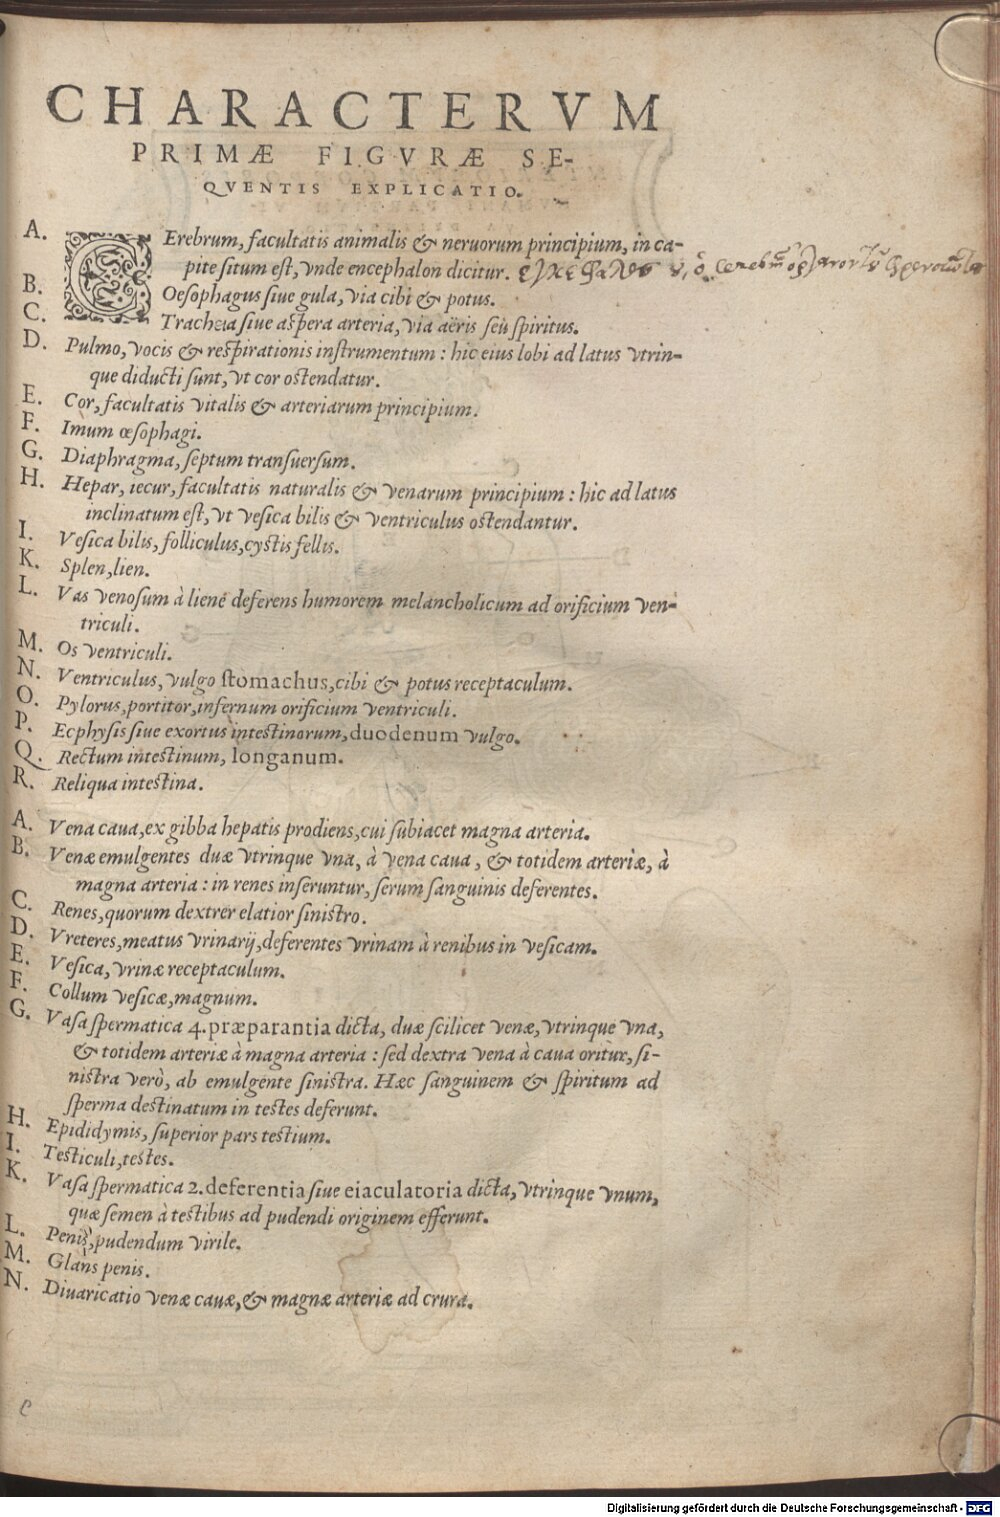 CHARACTERVM
PRIMÆ FIGVRÆ SE-
QVENTIS EXPLICATIO.
A. CErebrum, facultatis animalis & neruorum principium, in ca-
pite situm est, vnde encephalon dicitur.
B. Oesophagus siue gula, via cibi & potus.
C. Trachæa siue aspera arteria, via aëris seu spiritus.
D. Pulmo, vocis & respirationis instrumentum: hic eius lobi ad latus vtrin-
que diducti sunt, vt cor ostendatur.
E. Cor, facultatis vitalis & arteriarum principium.
F. Imum œsophagi.
G. Diaphragma, septum transuersum.
H. Hepar, iecur, facultatis naturalis & venarum principium: hic ad latus
inclinatum est, vt vesica bilis & ventriculus ostendantur.
I. Vesica bilis, folliculus, cystis fellis.
K. Splen, lien.
L. Vas venosum à liene deferens humorem melancholicum ad orificium ven-
triculi.
M. Os ventriculi.
N. Ventriculus, vulgo stomachus, cibi & potus receptaculum.
O. Pylorus, portitor, infernum orificium ventriculi.
P. Ecphysis siue exortus intestinorum, duodenum vulgo.
Q. Rectum intestinum, longanum.
R. Reliqua intestina.
A. Vena caua, ex gibba hepatis prodiens, cui subiacet magna arteria.
B. Venæ emulgentes duæ vtrinque vna, à vena caua, & totidem arteriæ, à
magna arteria: in renes inseruntur, serum sanguinis deferentes.
C. Renes, quorum dexter elatior sinistro.
D. Vreteres, meatus vrinarij, deferentes vrinam à renibus in vesicam.
E. Vesica, vrinæ receptaculum.
F. Collum vesicæ, magnum.
G. Vasa spermatica 4. præparantia dicta, duæ scilicet venæ, vtrinque vna,
& totidem arteriæ à magna arteria: sed dextra vena à caua oritur, si-
nistra verò, ab emulgente sinistra. Hæc sanguinem & spiritum ad
sperma destinatum in testes deferunt.
H. Epididymis, superior pars testium.
I. Testiculi, testes.
K. Vasa spermatica 2. deferentia siue eiaculatoria dicta, vtrinque vnum,
quæ semen à testibus ad pudendi originem efferunt.
L. Penis, pudendum virile.
M. Glans penis.
N. Diuaricatio venæ cauæ, & magnæ arteriæ ad crura.
e
Digitalisierung gefördert durch die Deutsche Forschungsgemeinschaft - DFG